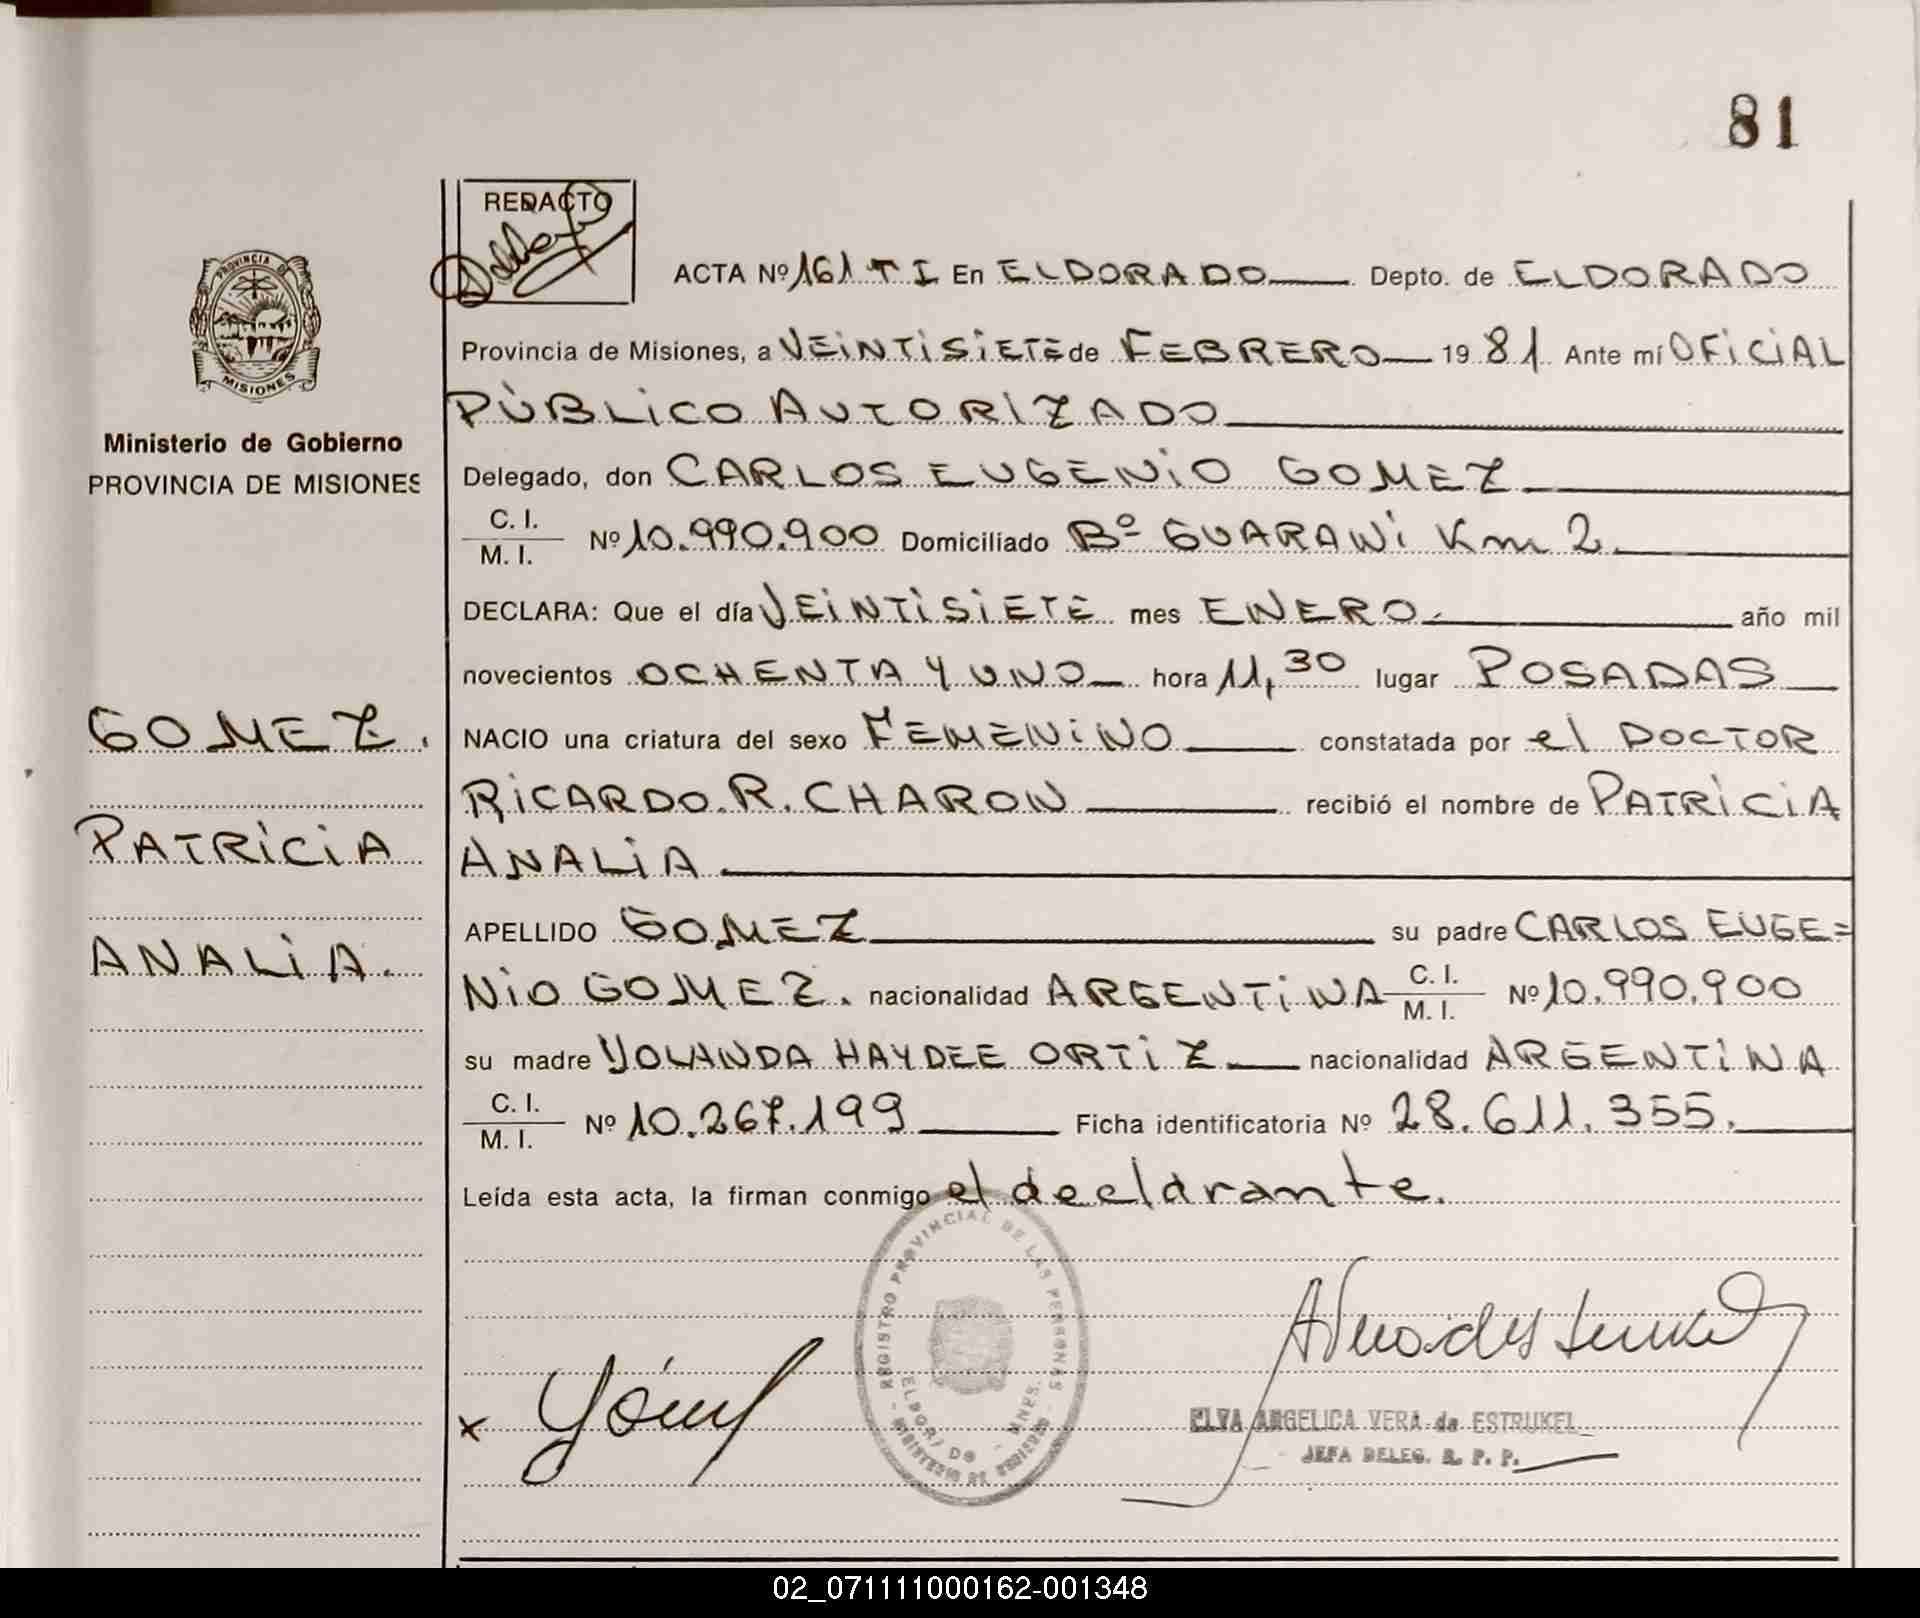 81
REDACTO
PROVINCIA DE
MISIONES
Ministerio de Gobierno
PROVINCIA DE MISIONES
GOMEZ.
PATRICIA
ANALIA.
ACTA Nº 161 T I En ELDORADO Depto. de ELDORADO
Provincia de Misiones, a VEINTISIETE de FEBRERO 19 81 Ante mí OFICIAL
PÚBLICO AUTORIZADO
Delegado, don CARLOS EUGENIO GOMEZ
C. I.
M. I. Nº 10.990.900 Domiciliado Bº GUARANI Km 2
DECLARA: Que el día VEINTISIETE mes ENERO. año mil
novecientos OCHENTA Y UNO hora 11,30 lugar POSADAS
NACIO una criatura del sexo FEMENINO constatada por el DOCTOR
RICARDO.R.CHARON recibió el nombre de PATRICIA
ANALIA
APELLIDO GOMEZ su padre CARLOS EUGE=
NIO GOMEZ. nacionalidad ARGENTINA C. I.
M. I. Nº 10.990.900
su madre YOLANDA HAYDEE ORTIZ nacionalidad ARGENTINA
C. I.
M. I. Nº 10.267.199 Ficha identificatoria Nº 28.611.355.
Leída esta acta, la firman conmigo el declarante.
REGISTRO PROVINCIAL DE LAS PERSONAS
x
ELVA ANGELICA VERA de ESTRUKEL
JEFA DELEG. R. P. P.
02_071111000162-001348